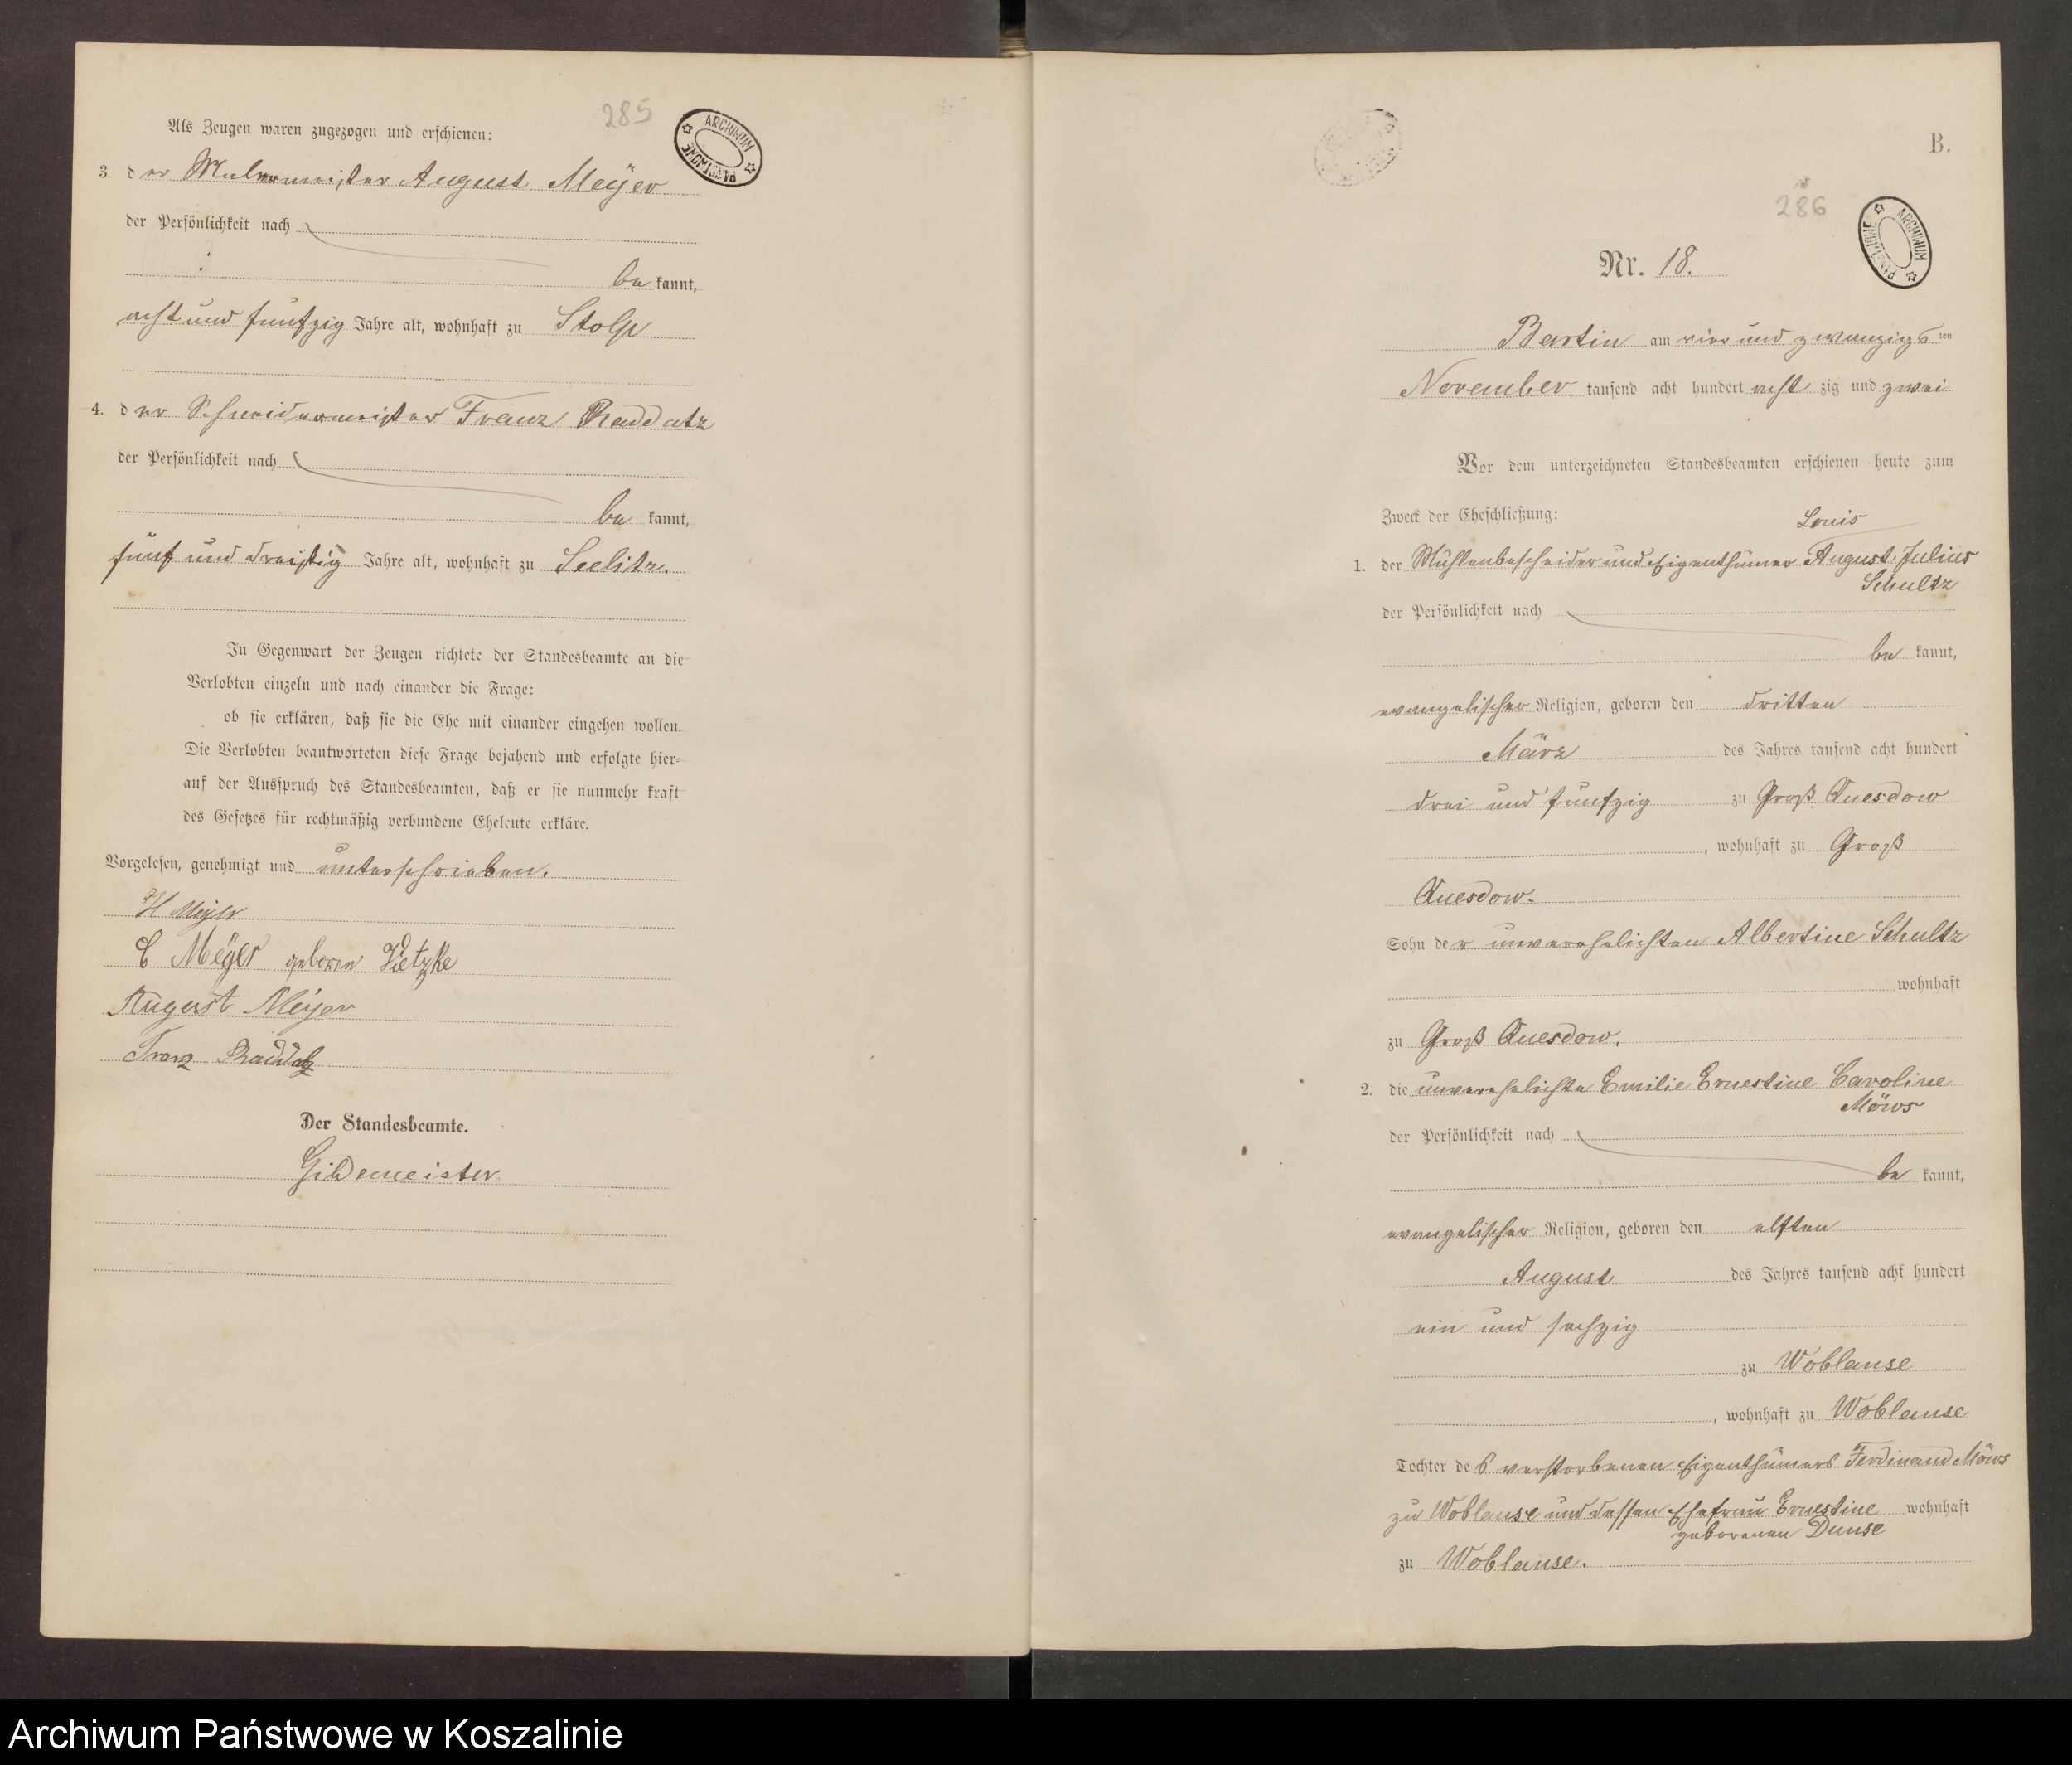 285
ARCHIWUM PAŃSTWOWE
Als Zeugen waren zugezogen und erschienen:
3. der August Meÿer
der Persönlichkeit nach
be kannt,
acht und fünfzig Jahre alt, wohnhaft zu Stolp
4. der Schneidermeister Franz Raddatz
der Persönlichkeit nach
be kannt,
fünf und dreißig Jahre alt, wohnhaft zu Seelitz.
In Gegenwart der Zeugen richtete der Standesbeamte an die
Verlobten einzeln und nach einander die Frage:
ob sie erklären, daß sie die Ehe mit einander eingehen wollen.
Die Verlobten beantworteten diese Frage bejahend und erfolgte hier-
auf der Ausspruch des Standesbeamten, daß er sie nunmehr kraft
des Gesetzes für rechtmäßig verbundene Eheleute erkläre.
Vorgelesen, genehmigt und unterschrieben.
H Meÿer
C Meÿer geboren Vietzke
August Meÿer
Franz Raddatz
Der Standesbeamte.
Gildemeister
B.
286
ARCHIWUM PAŃSTWOWE
Nr. 18.
Bartin am vier und zwanzigsten
November tausend acht hundert acht zig und zwei
Vor dem unterzeichneten Standesbeamten erschienen heute zum
Zweck der Eheschließung:
Louis
1. der Mühlenbescheider und Eigenthümer August Julius
Schultz
der Persönlichkeit nach
be kannt,
evangelischer Religion, geboren den dritten
März des Jahres tausend acht hundert
drei und fünfzig zu Groß Quesdow
, wohnhaft zu Groß
Quesdow.
Sohn der unverehelichten Albertine Schultz
wohnhaft
zu Groß Quesdow.
2. die unverehelichte Emilie Ernestine Caroline
Möws
der Persönlichkeit nach
be kannt,
evangelischer Religion, geboren den elften
August des Jahres tausend acht hundert
ein und sechzig
zu Woblanse
, wohnhaft zu Woblanse
Tochter des verstorbenen Eigenthümers Ferdinand Möws
zu Woblanse und dessen Ehefrau Ernestine wohnhaft
geborenen Dunse
zu Woblanse.
Archiwum Państwowe w Koszalinie